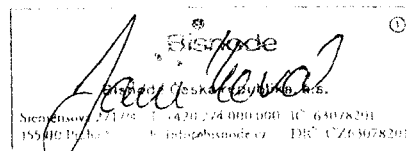 ①
Bisnode
Bisnode Česká republika, a.s.
Siemensova 2717/4 T +420 274 000 000 IČ 63078201
155 00 Praha 5 E info@bisnode.cz DIČ CZ63078201